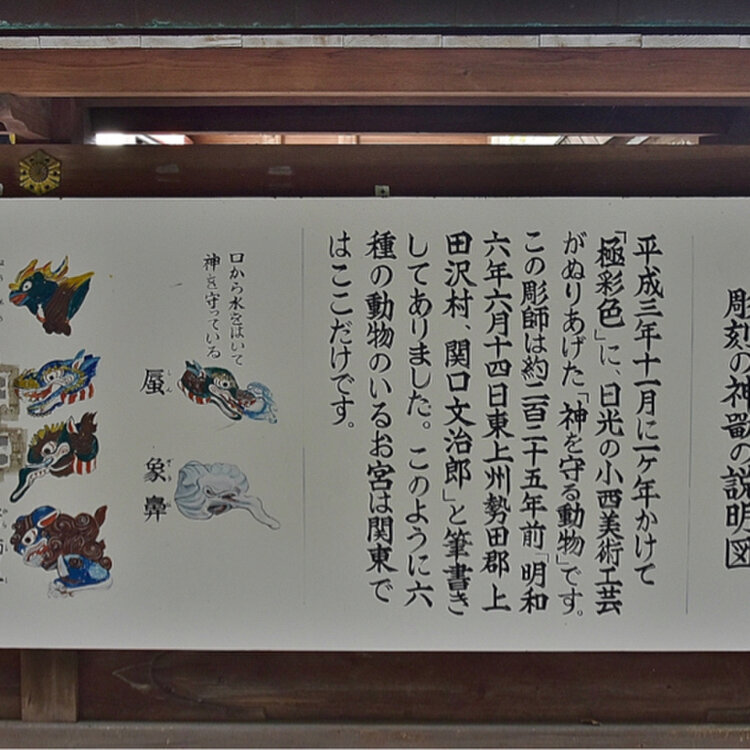 彫刻の神獣の説明図
平成三年十一月に一ヶ年かけて
「極彩色」に、日光の小西美術工芸
がぬりあげた「神を守る動物」です。
この彫師は約二百二十五年前「明和
六年六月十四日東上州勢田郡上
田沢村、関口文治郎」と筆書き
してありました。このように六
種の動物のいるお宮は関東で
はここだけです。
口から水をはいて
神を守っている
蜃
しん
象鼻
ぞう